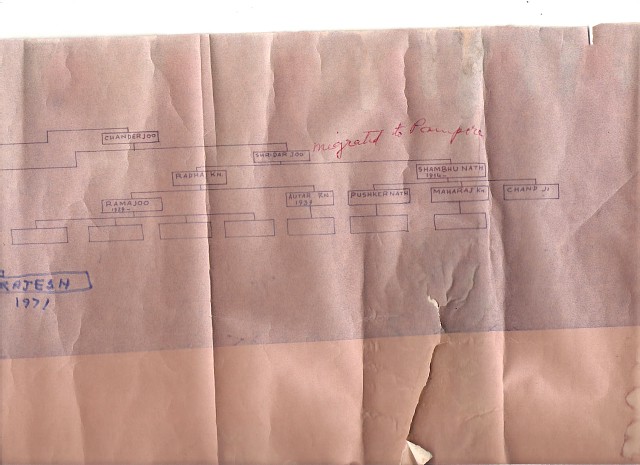 CHANDERJOO
SHRIDAR JOO
migrated to Pampore
RADHA KN.
SHAMBHU NATH
RAMAJOO
AUTAR KN.
PUSHKERNATH
MAHARAJ KN.
CHAND JI
RAJESH
1971